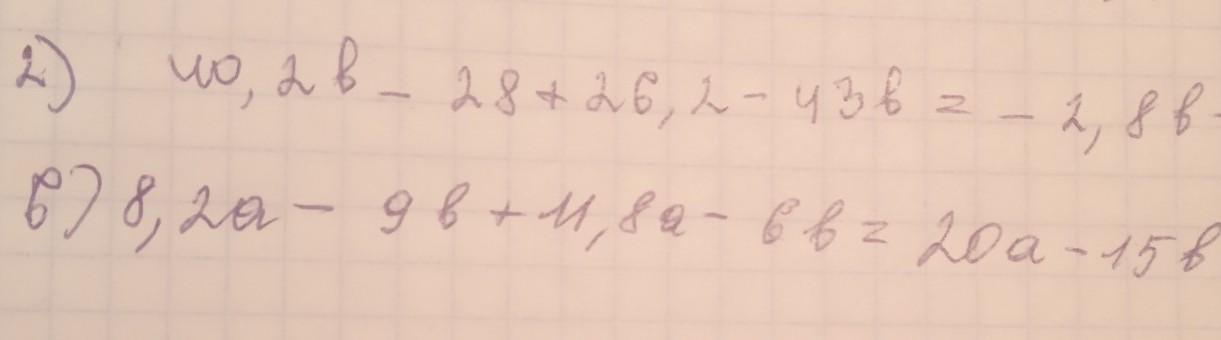 2) 40,2в - 28 + 26,2 - 43в = - 2,8в -
б) 8,2а - 9в + 11,8а - 6в = 20а - 15в